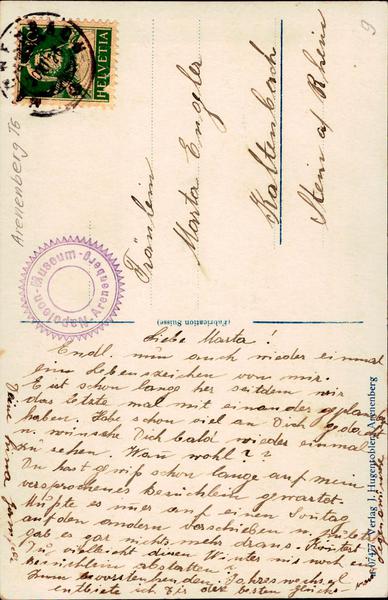 HELVETIA
Arenenberg TG
Napoleon-Museum-Arenenberg
Fräulein
Marta Engler
Kaltenbach
Stein a/ Rhein
9
(Fabrication Suisse)
Verlag J. Hugentobler, Arenenberg
Liebe Marta!
Endl. nun auch wieder einmal
ein Lebenszeichen von mir.
Es ist schon lange her seitdem wir
das letzte mal mit einander geplaudert
haben. Habe schon viel an Dich gedacht
u. wünsche Dich bald wieder einmal
zu sehen. Wann wohl??
Du hast gewiss schon lange auf mein
versprochenes Besüchlein gewartet.
Mußte es immer auf einen Sontag
auf den andern verschieben u. zuletzt
gab es gar nichts mehr draus. Könntest
Du vielleicht diesen Winter mir noch ein
Besüchlein abstatten?
Zum bevorstehenden Jahreswechsel
entbiete ich Dir die besten Glücks-